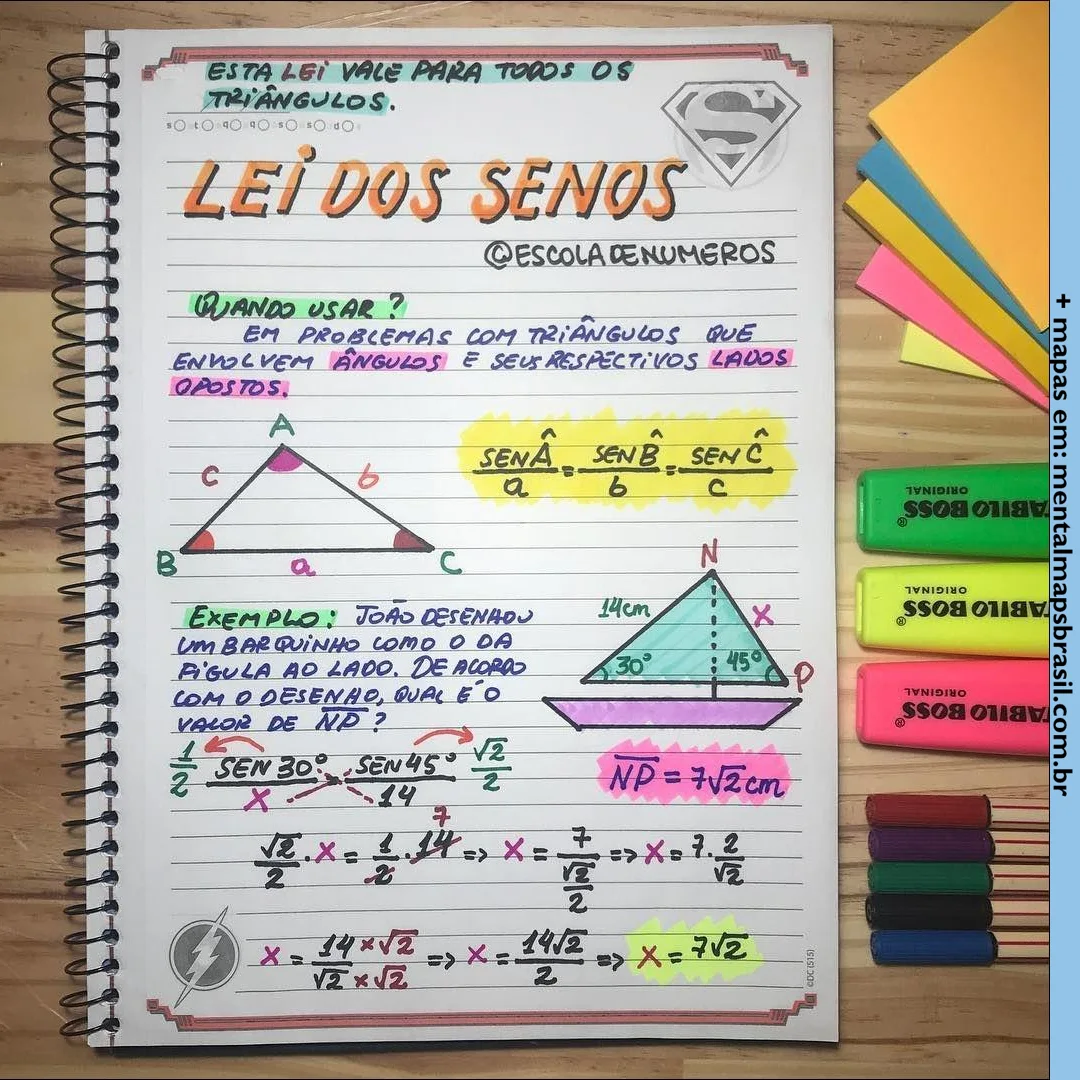 ESTA LEI VALE PARA TODOS OS
TRIÂNGULOS.
s t q q s s d
LEI DOS SENOS
@ESCOLADENUMEROS
QUANDO USAR?
EM PROBLEMAS COM TRIÂNGULOS QUE
ENVOLVEM ÂNGULOS E SEUS RESPECTIVOS LADOS
OPOSTOS.
A
c b
B a C
SEN Â/a = SEN B̂/b = SEN Ĉ/c
EXEMPLO: JOÃO DESENHOU
UM BARQUINHO COMO O DA
FIGULA AO LADO. DE ACORDO
COM O DESENHO, QUAL É O
VALOR DE N̅P̅?
N
14cm x
30° 45° P
1/2 SEN 30°/x SEN 45°/14 √2/2
N̅P̅ = 7√2 cm
7
√2/2 . x = 1/2 . 14 => x = 7/(√2/2) => x = 7 . 2/√2
x = 14 x √2/√2 x √2 => x = 14√2/2 => x = 7√2
©DC (S15)
+ mapas em: mentalmapsbrasil.com.br
STABILO BOSS
ORIGINAL
STABILO BOSS
ORIGINAL
STABILO BOSS
ORIGINAL